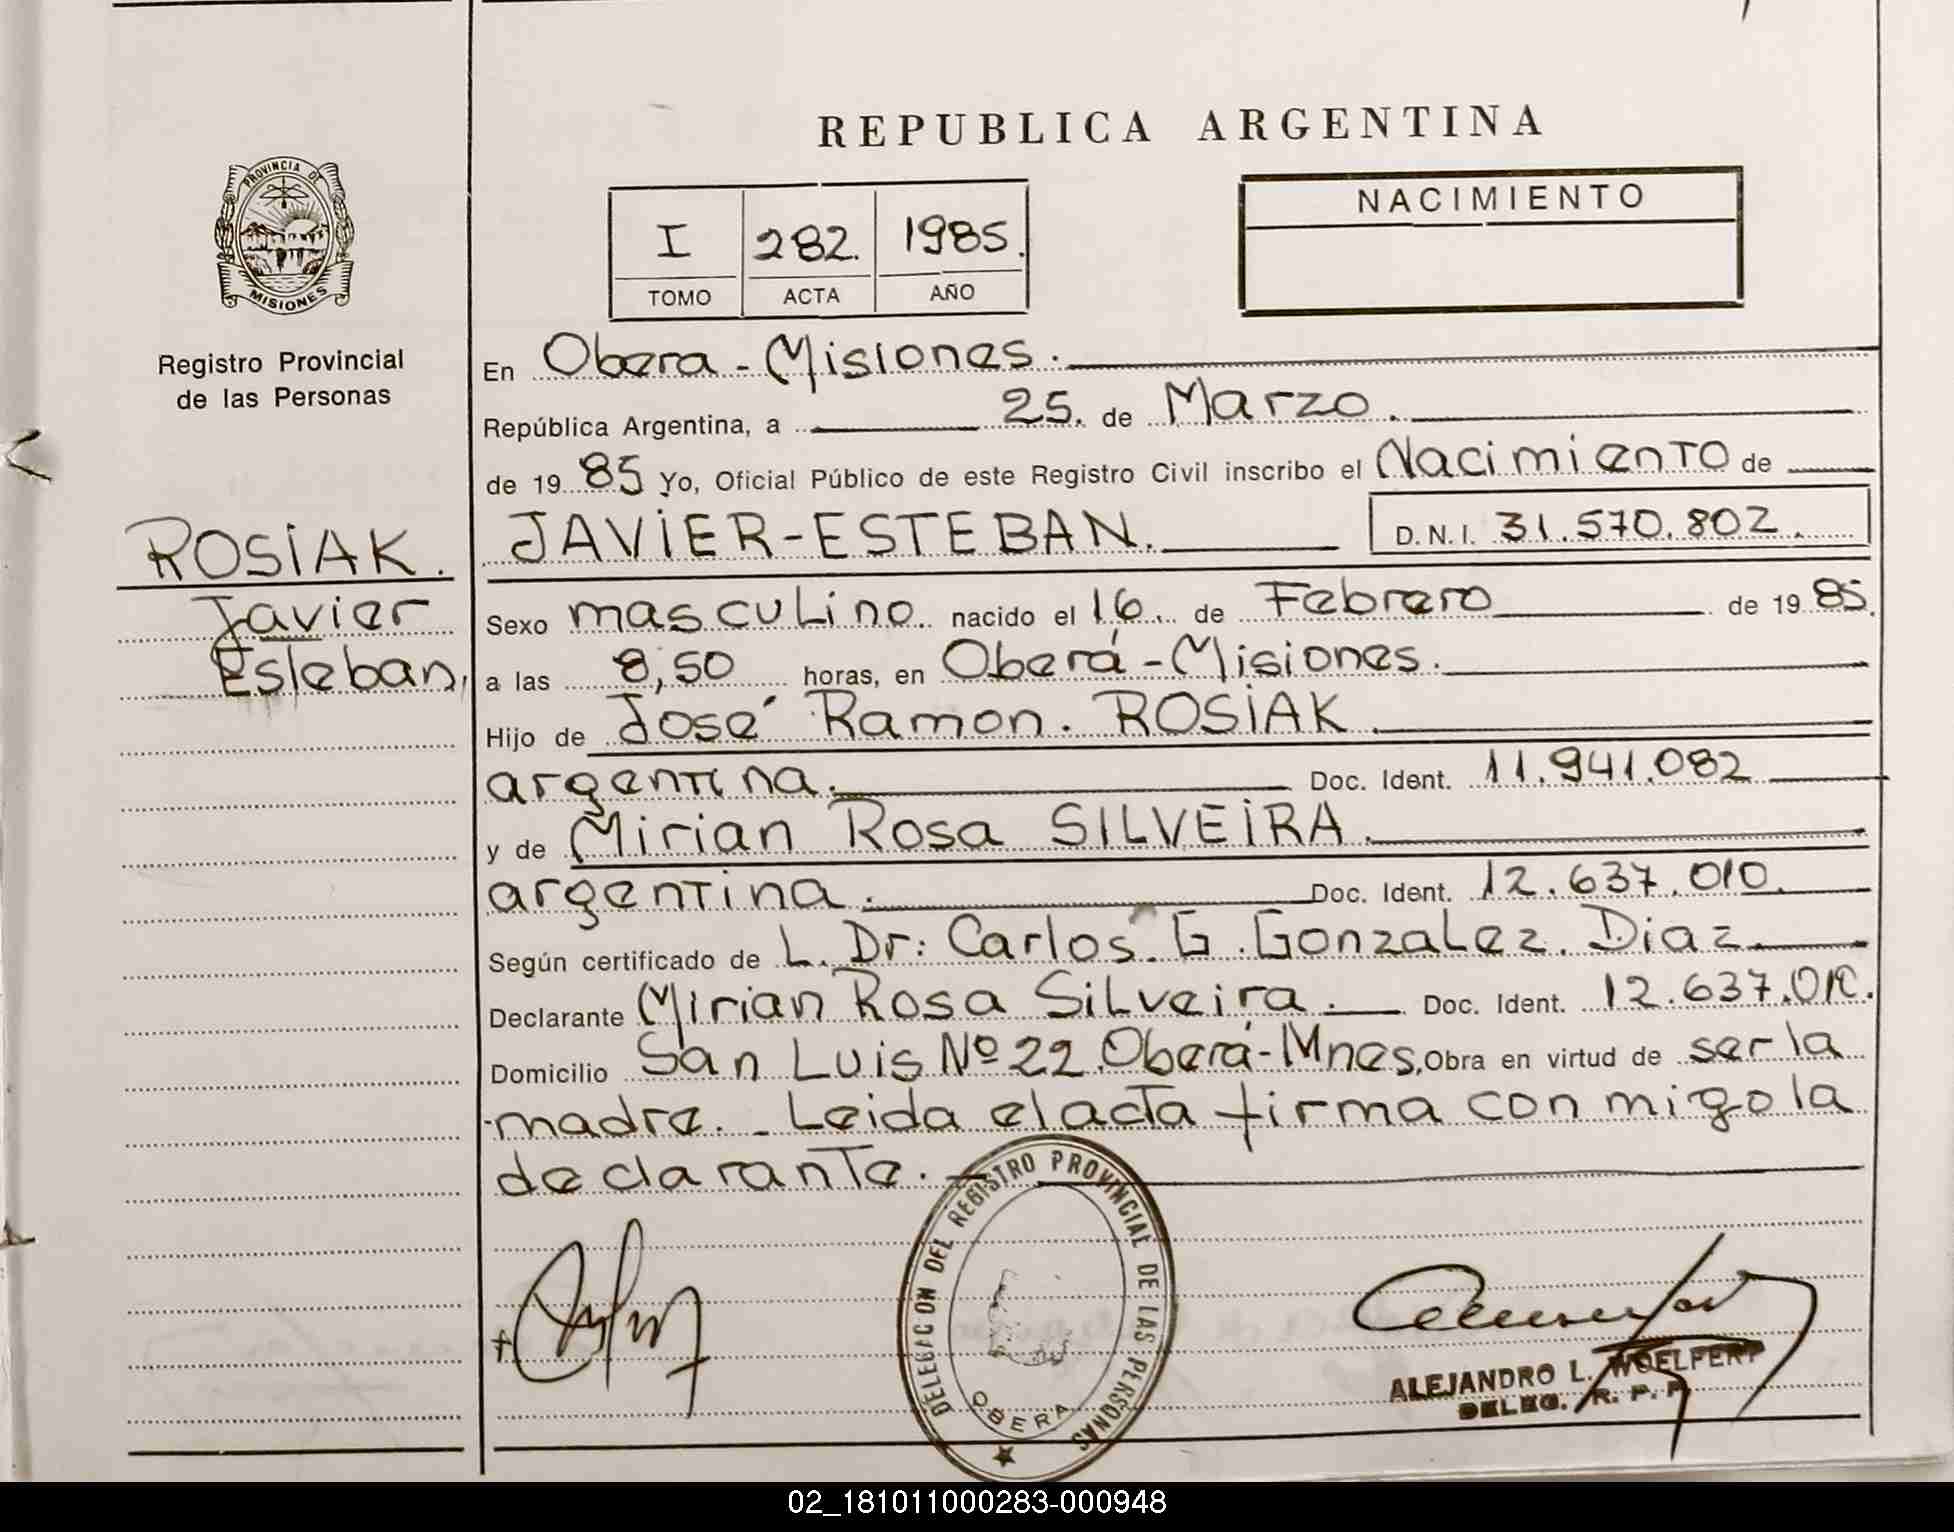 REPUBLICA ARGENTINA
PROVINCIA DE
MISIONES
Registro Provincial
de las Personas
I 282. 1985.
TOMO ACTA AÑO
NACIMIENTO
En Obera - Misiones.
República Argentina, a 25. de Marzo.
de 19 85 Yo, Oficial Público de este Registro Civil inscribo el Nacimiento de
ROSIAK.
Javier
Esteban,
JAVIER-ESTEBAN. D.N.I. 31.570.802.
Sexo masculino nacido el 16. de Febrero de 19 85.
a las 8,50 horas, en Oberá - Misiones.
Hijo de José Ramon. ROSIAK
argentina. Doc. Ident. 11.941.082
y de Mirian Rosa SILVEIRA.
argentina. Doc. Ident. 12.637.010.
Según certificado de L. Dr: Carlos G. Gonzalez. Diaz.
Declarante Mirian Rosa Silveira. Doc. Ident. 12.637.010.
Domicilio San Luis Nº 22. Oberá-Mnes, Obra en virtud de ser la
madre. - Leida el acta firma con migo la
declarante.
DELEGACION DEL REGISTRO PROVINCIAL DE LAS PERSONAS
OBERA
ALEJANDRO L. WOELFERT
DELEG. R. P. P.
02_181011000283-000948